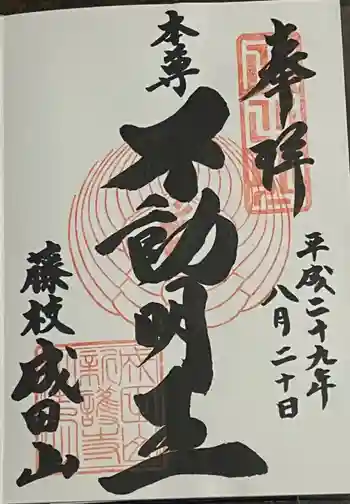 奉拝
平成二十九年
八月二十日
本尊
不動明王
藤枝成田山
新護寺